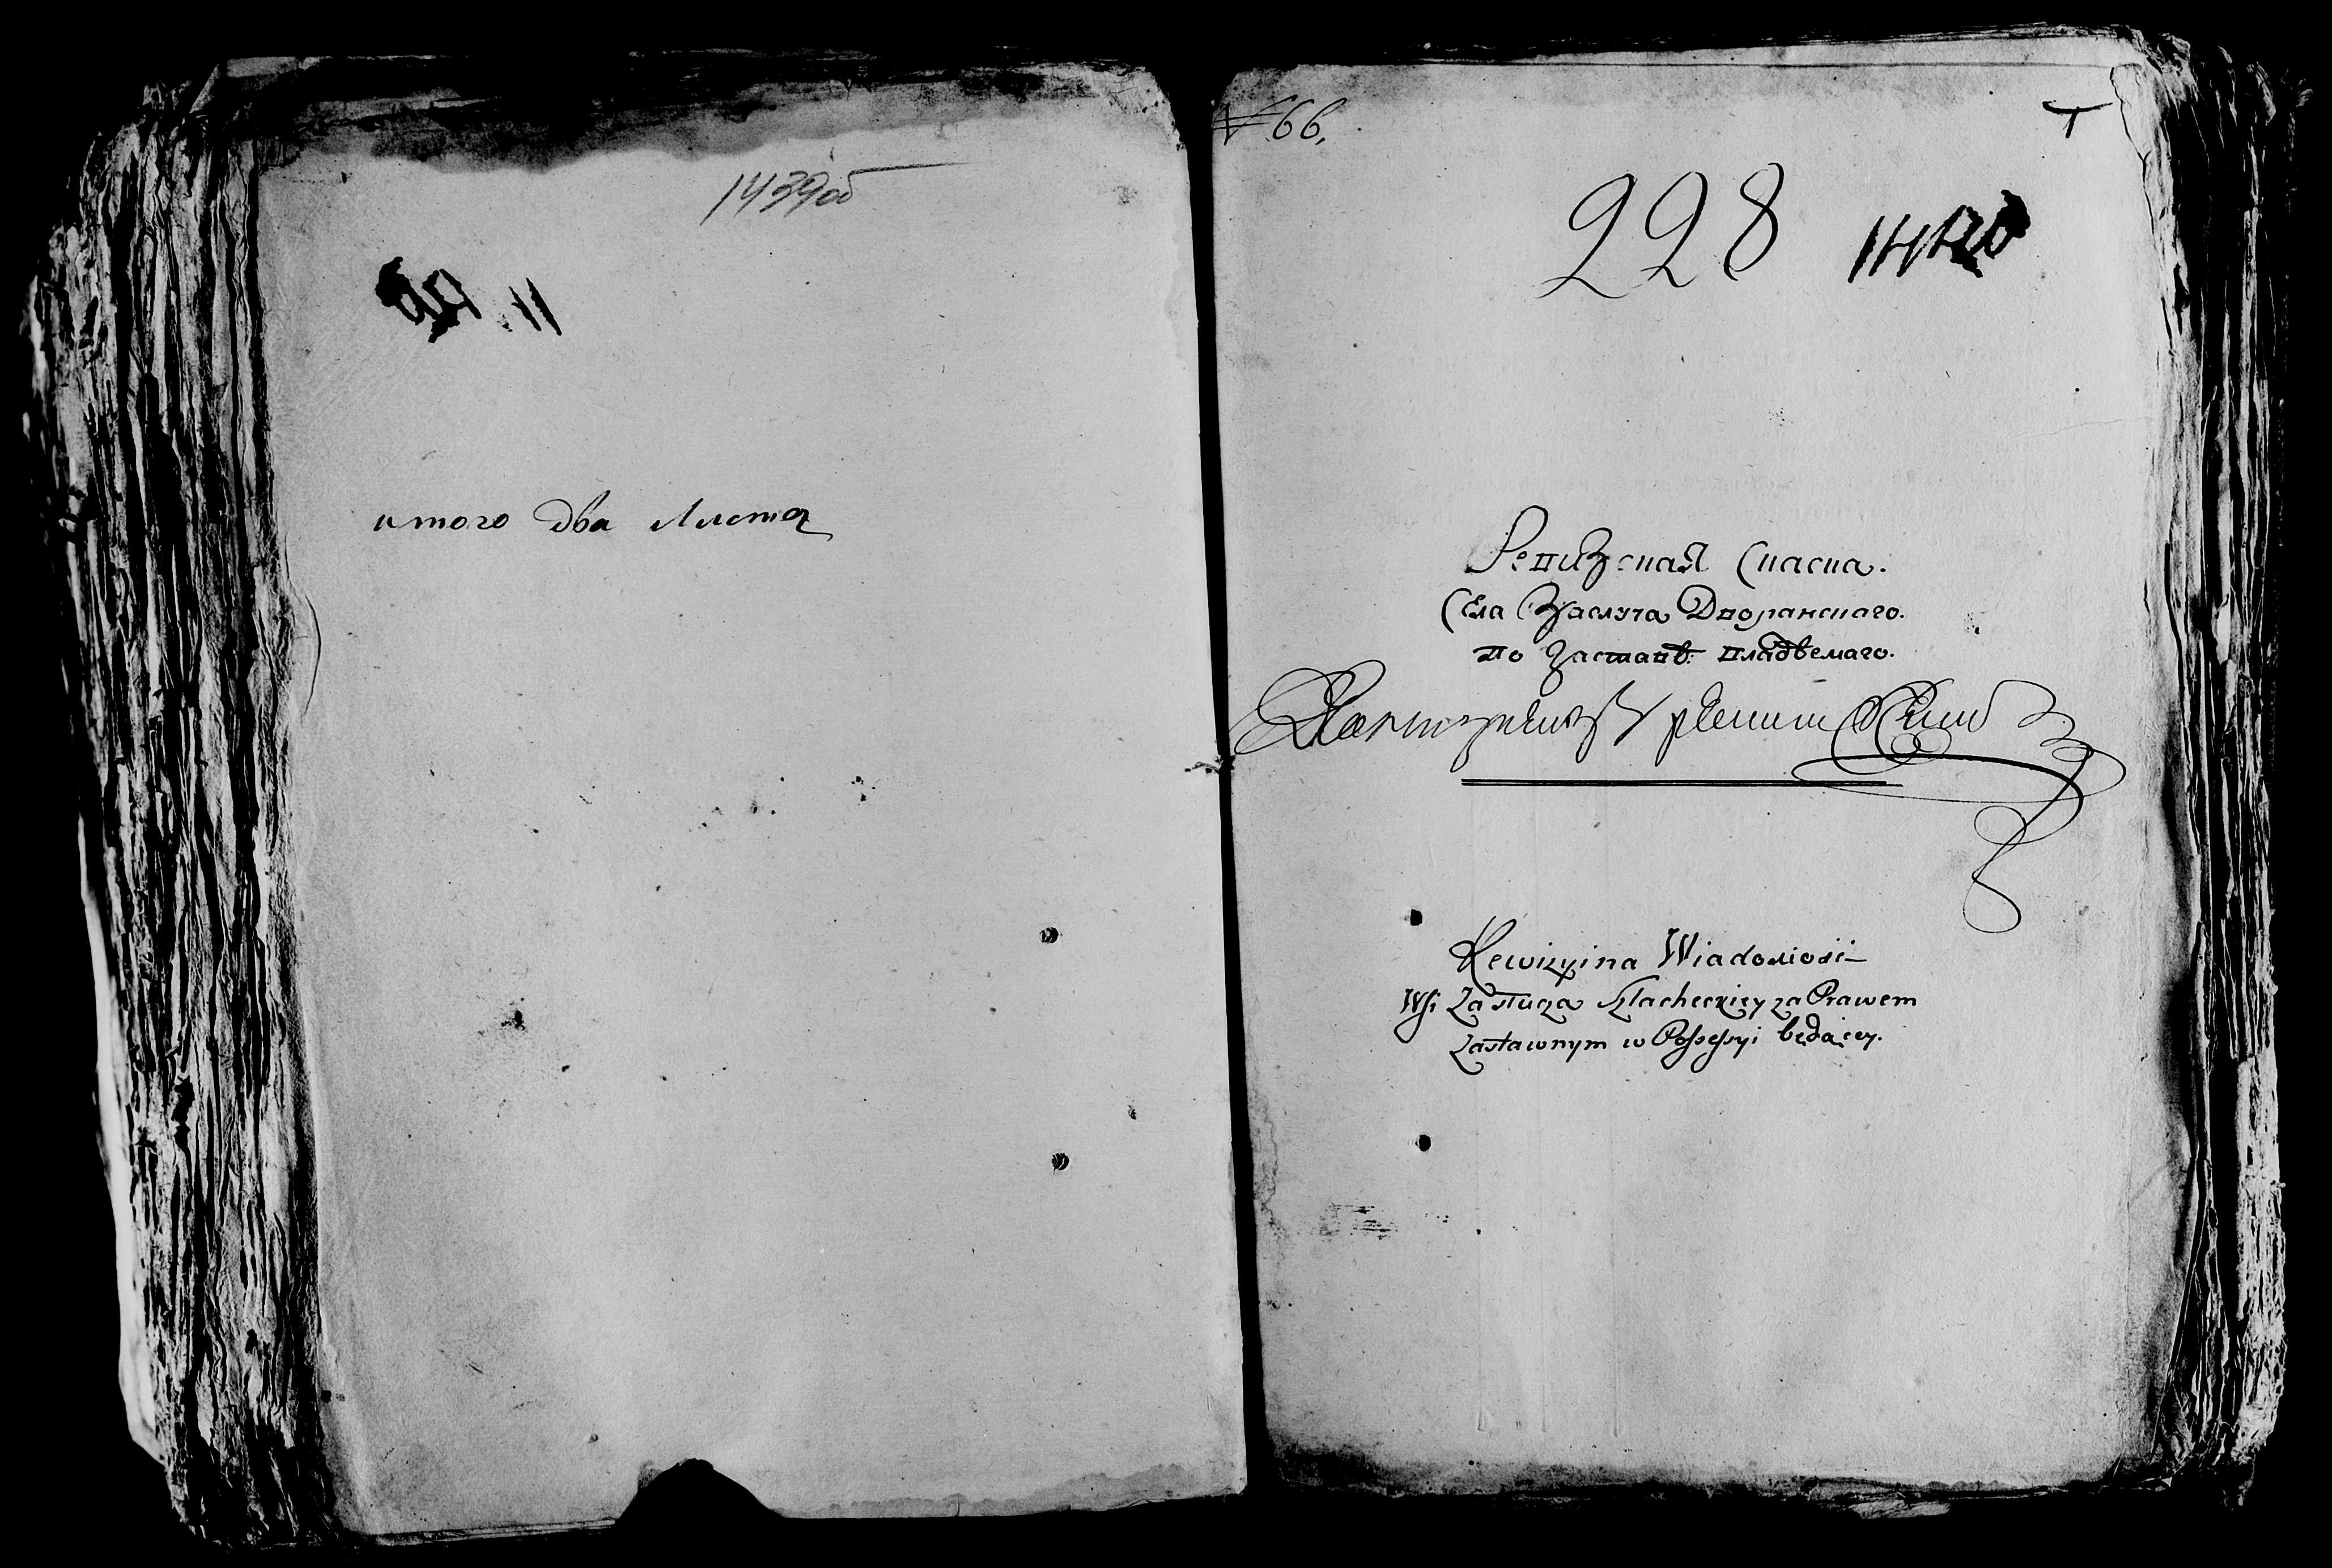 1439об
итого два листа
№ 66.
228
Ревизская Сказка.
Села Заслуча Дворанскаго.
по Заставѣ владѣемаго.
Rewizyina Wiadomosć
Wsi Zasłucza Szlacheckiey za Prawem
Zastawnym w Possessyi będącey.